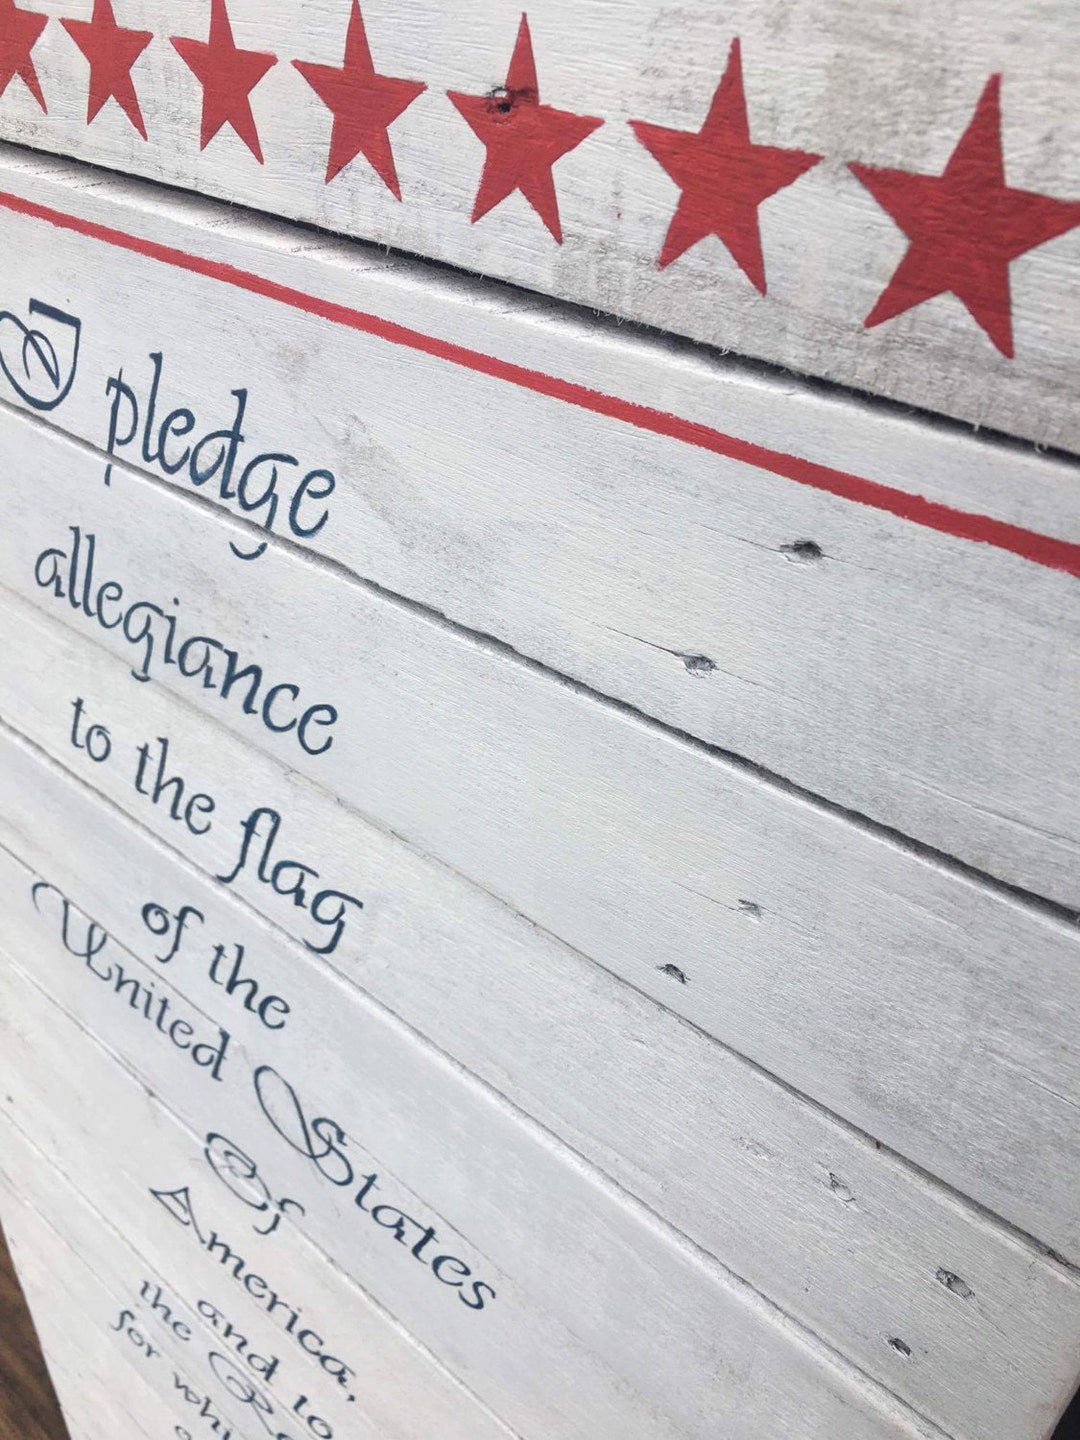 I pledge
allegiance
to the flag
of the
United States
Of
America,
and to
the
for